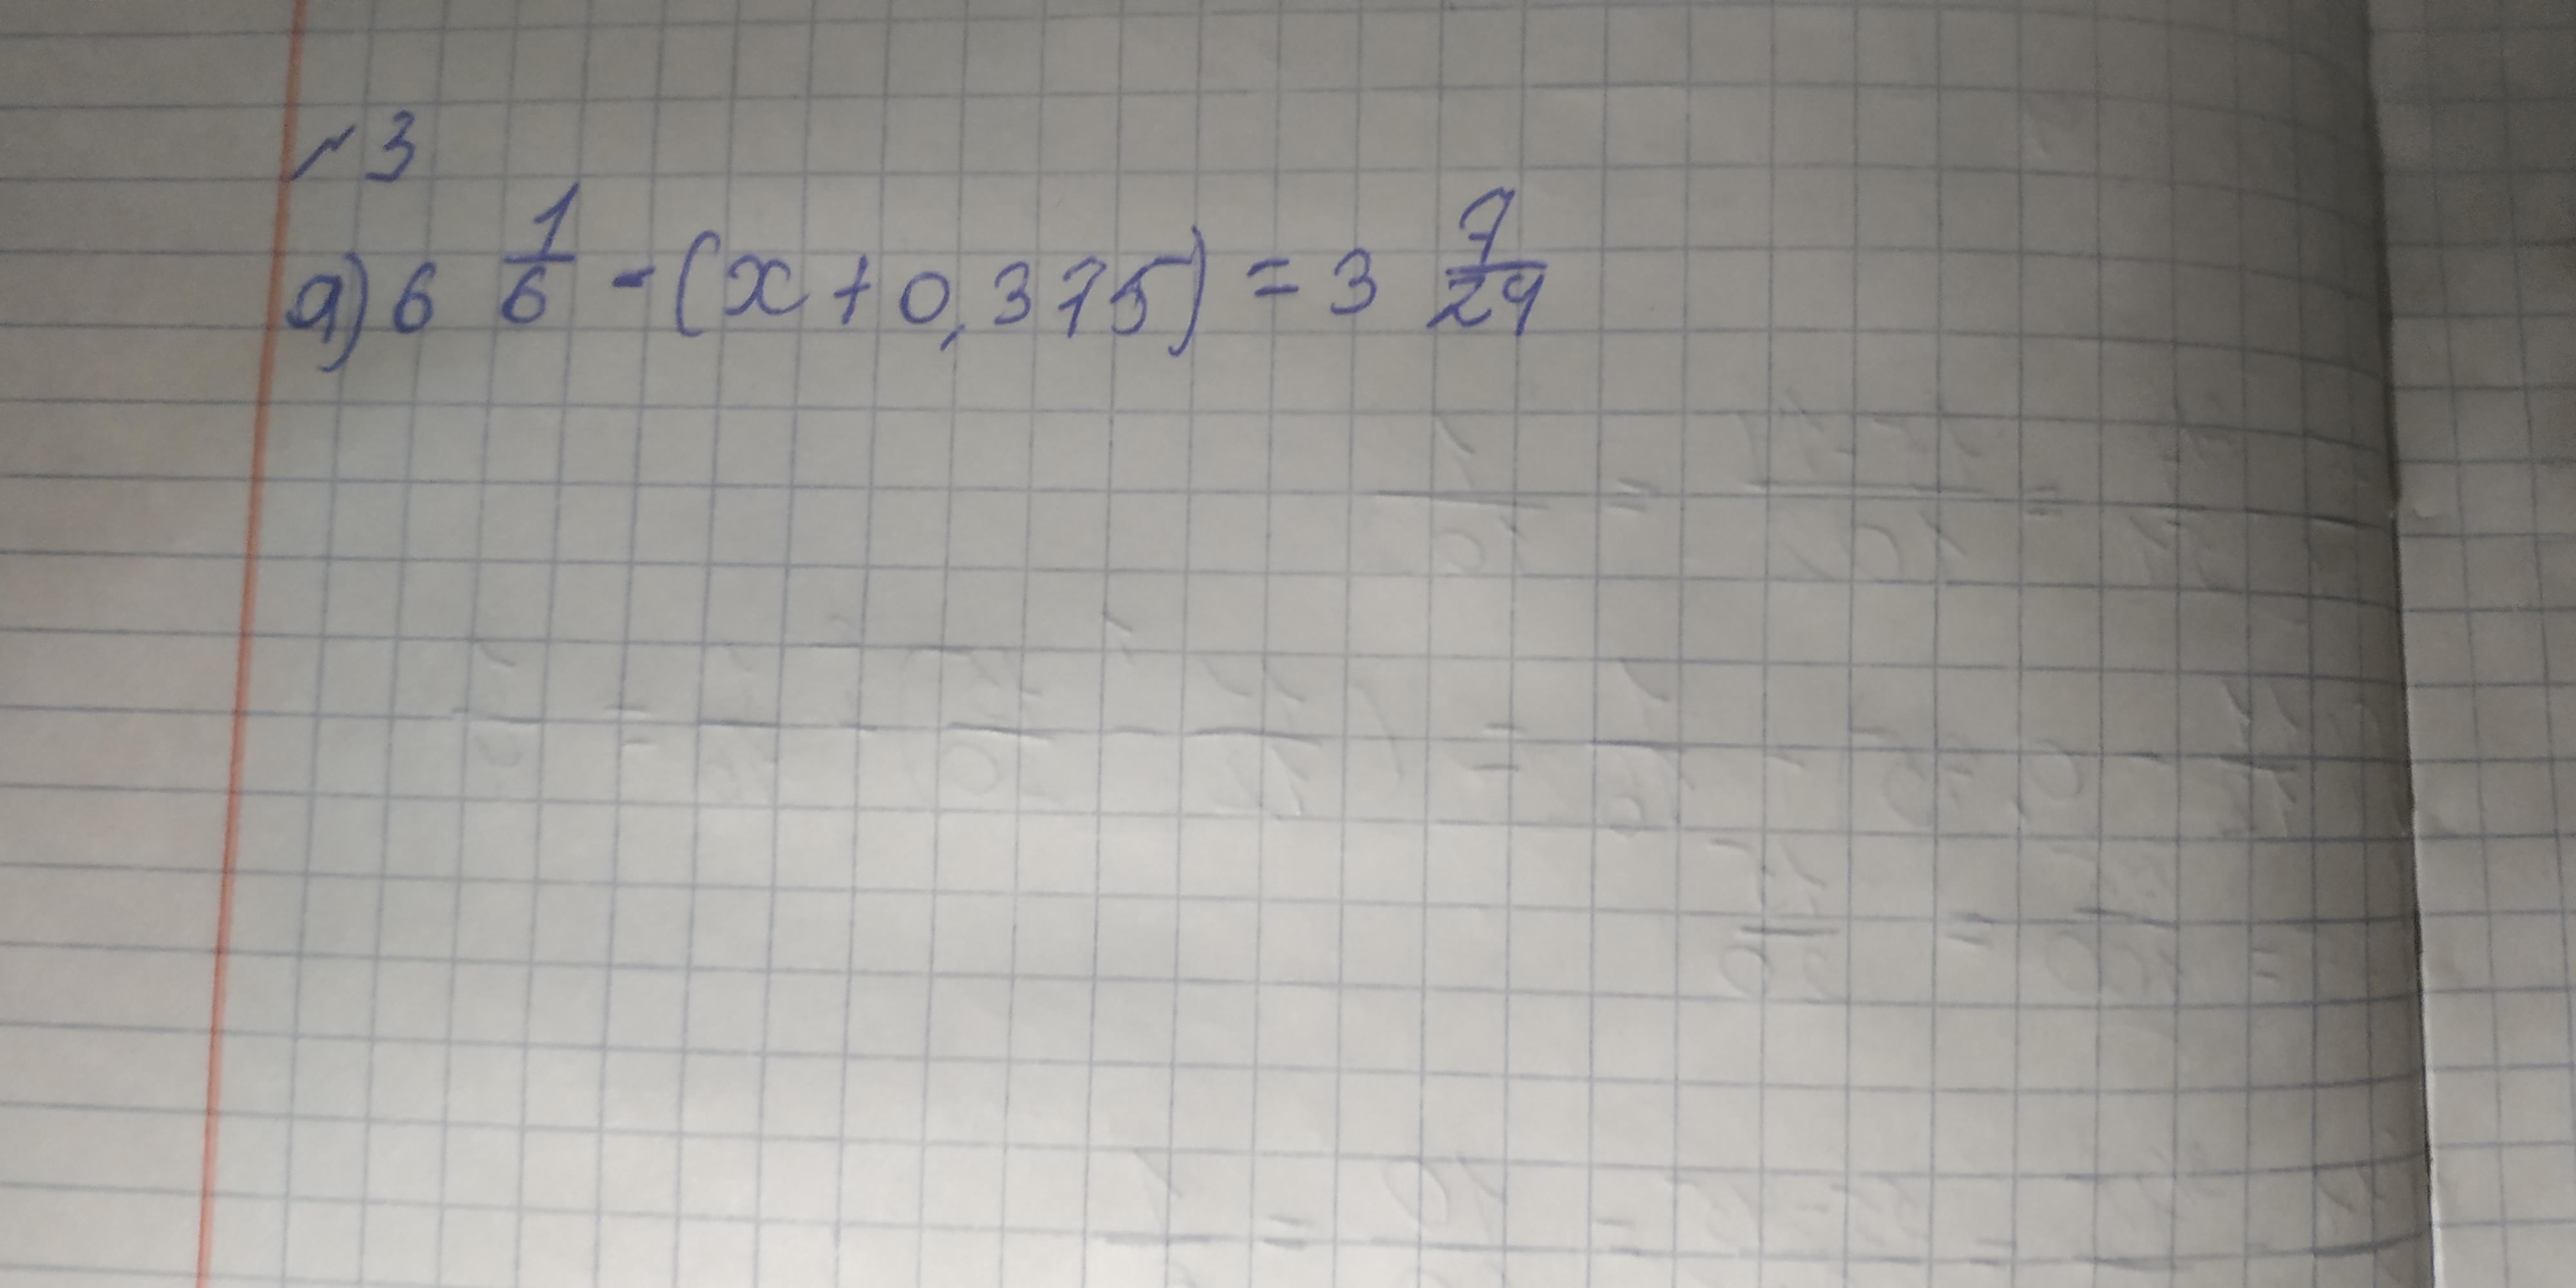 №3
а) 6 1/6 - (x + 0,375) = 3 7/24